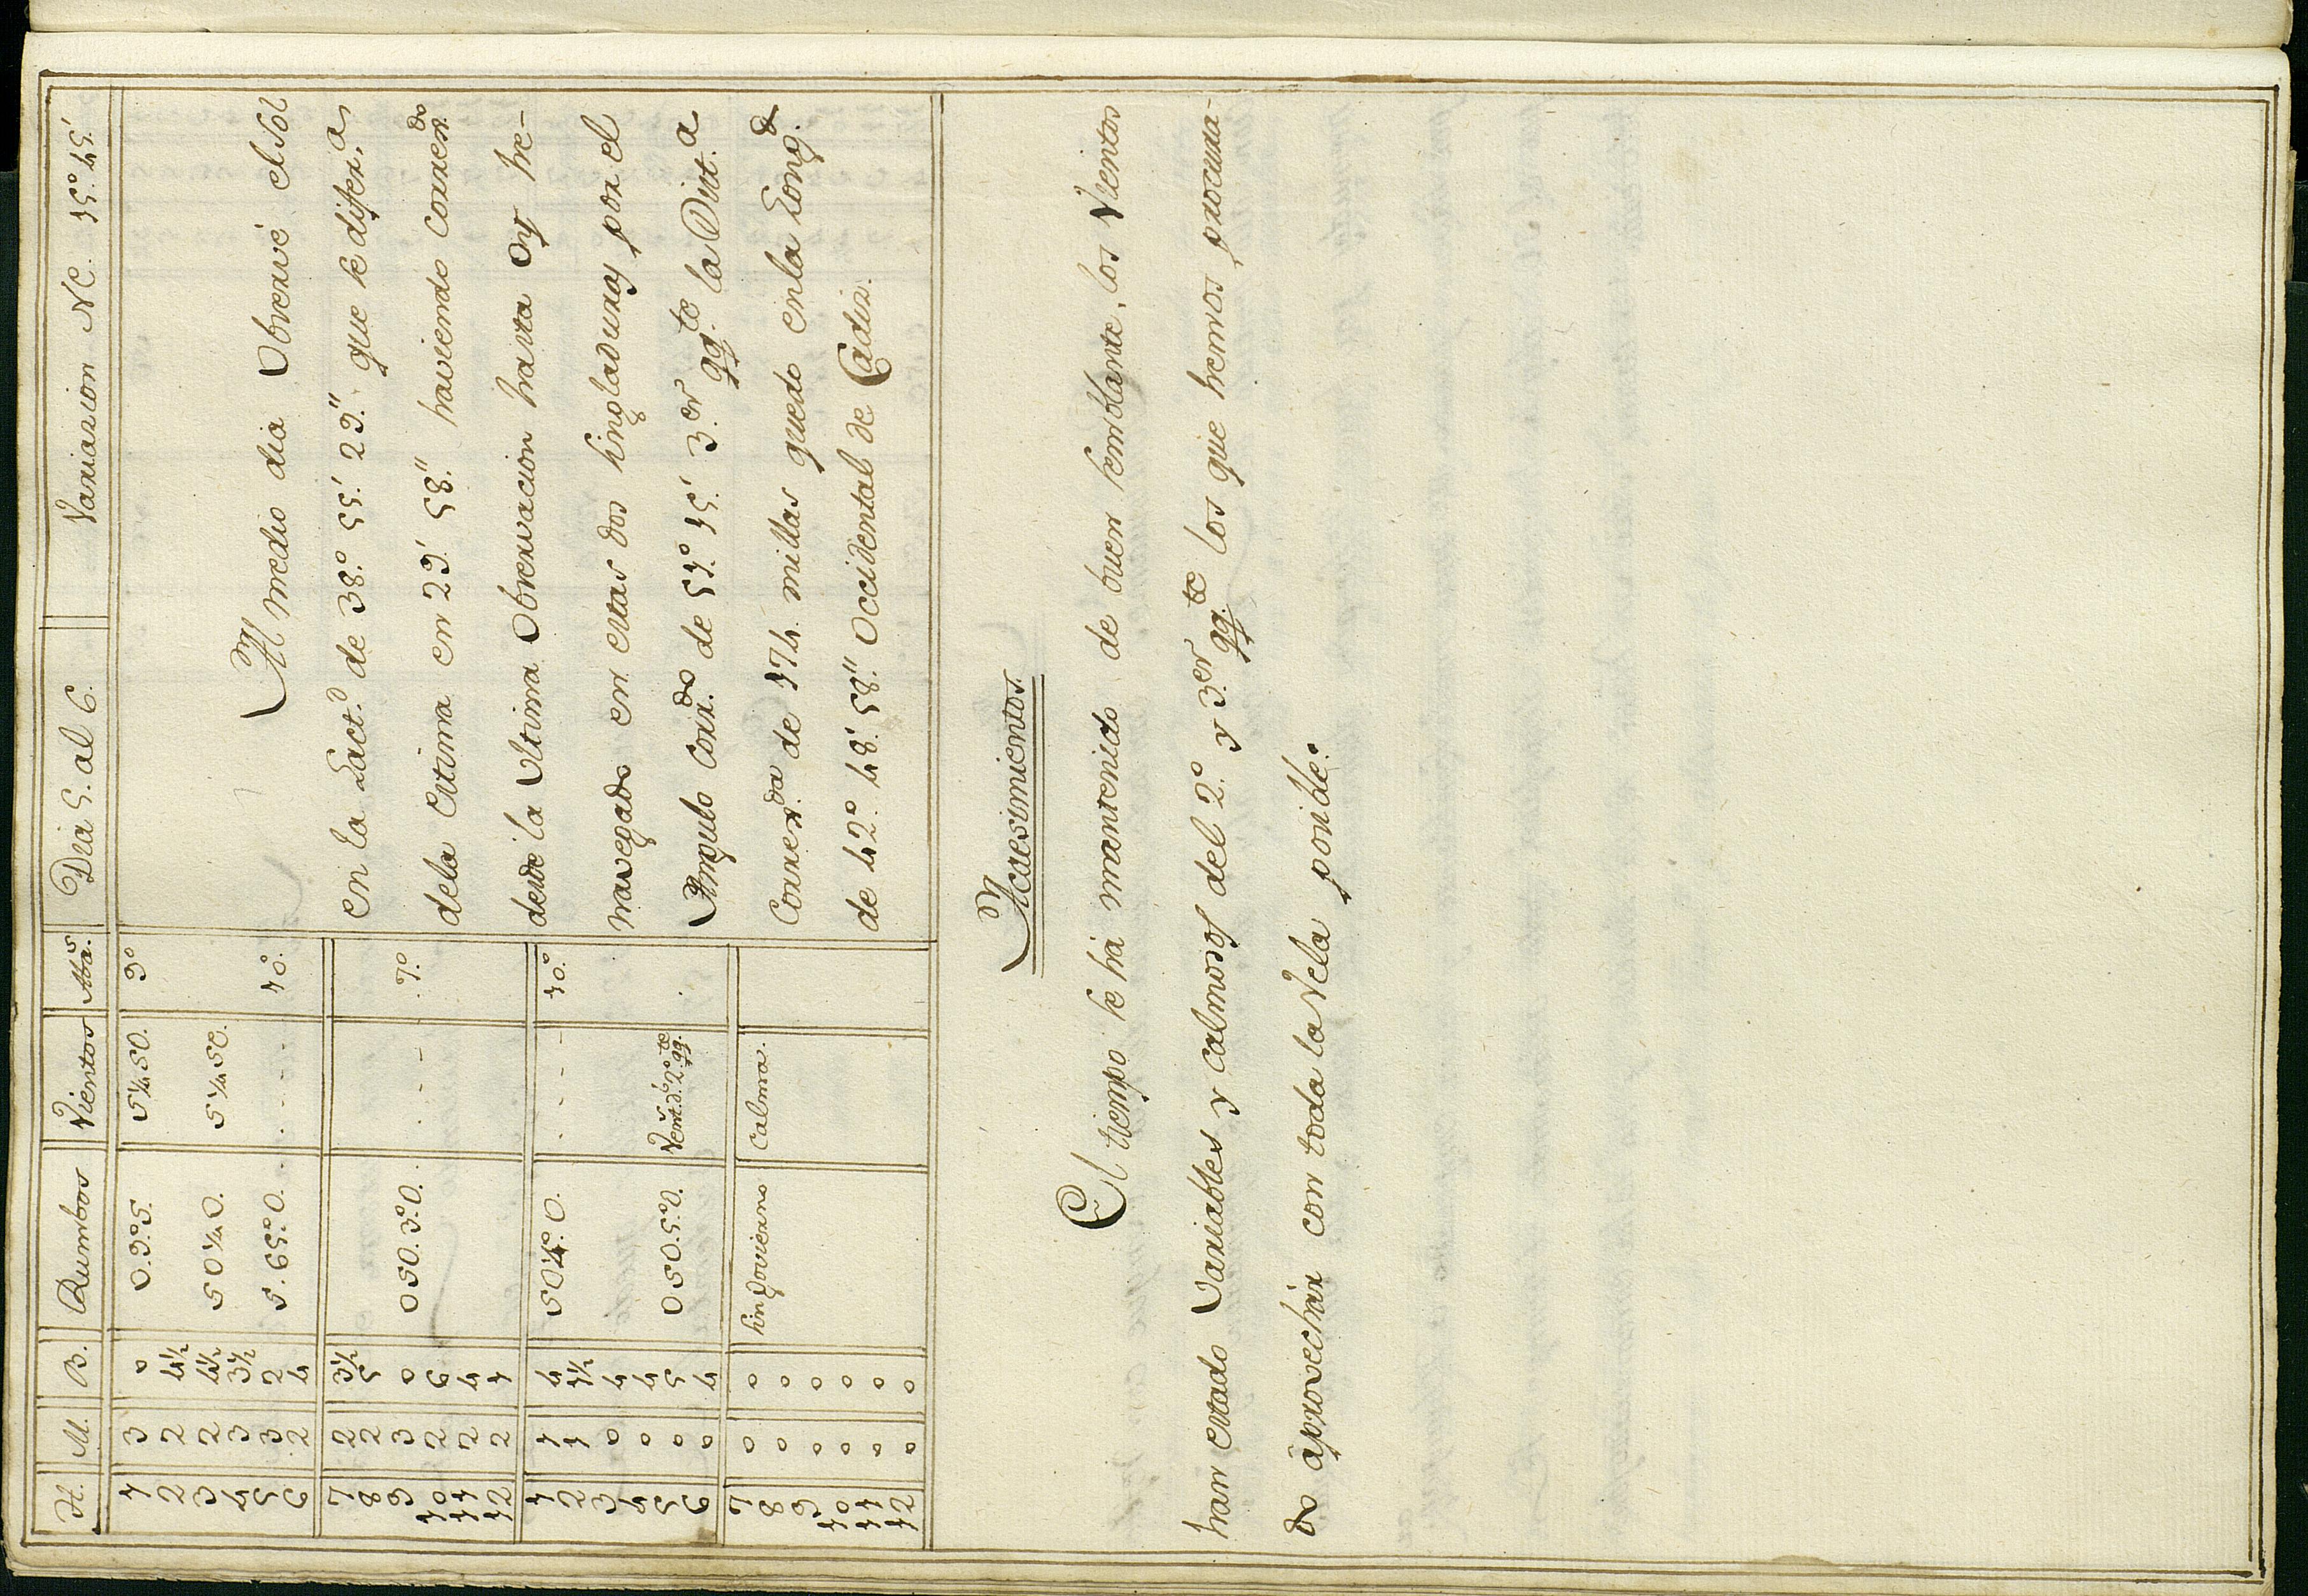 H. M. B. Rumbos Vientos Aba.s Dia 5. al 6. Variazion NE. 15.° 45.'
1 3 0 O. 9.° S. S ¼ SO. 9.°
2 2 4½
3 2 4½ SO ¼ O. S ¼ SE.
4 3 3½
5 3 2 S. 65.° O. - - - 10.°
6 2 4
7 2 3½
8 2 5
9 3 0 OSO. 3.° O. - - - 7.°
10 2 6
11 2 4
12 2 1
1 1 4 SO 4.° O. - - - 10.°
2 1 1½
3 0 4
4 0 4
5 0 5 OSO. 5.° O. Vent.s d.l 2.° qq.te
6 0 4
7 0 0 sin Govierno Calma.
8 0 0
9 0 0
10 0 0
11 0 0
12 0 0
Al medio dia Observé el Sol
en la Lact.d de 38.° 55.' 29." que se difer.a
dela Estima en 29.' 58." haviendo corres.do
desde la Ultima Observacion hasta oy he-
navegado en estas dos singladuras por el
Angulo corr.do de 51.° 15.' 3.er qq.te la Dist.a
Corres.da de 174 millas quedo en la Long.d
de 42.° 48.' 58." Occidental de Cadiz.
Acaesimientos.
El tiempo se há mantenido de buen semblante, los Vientos
han estado Variables y calmosos del 2.° y 3.er qq.te los que hemos procura-
do áprovechár con toda la Vela posible.